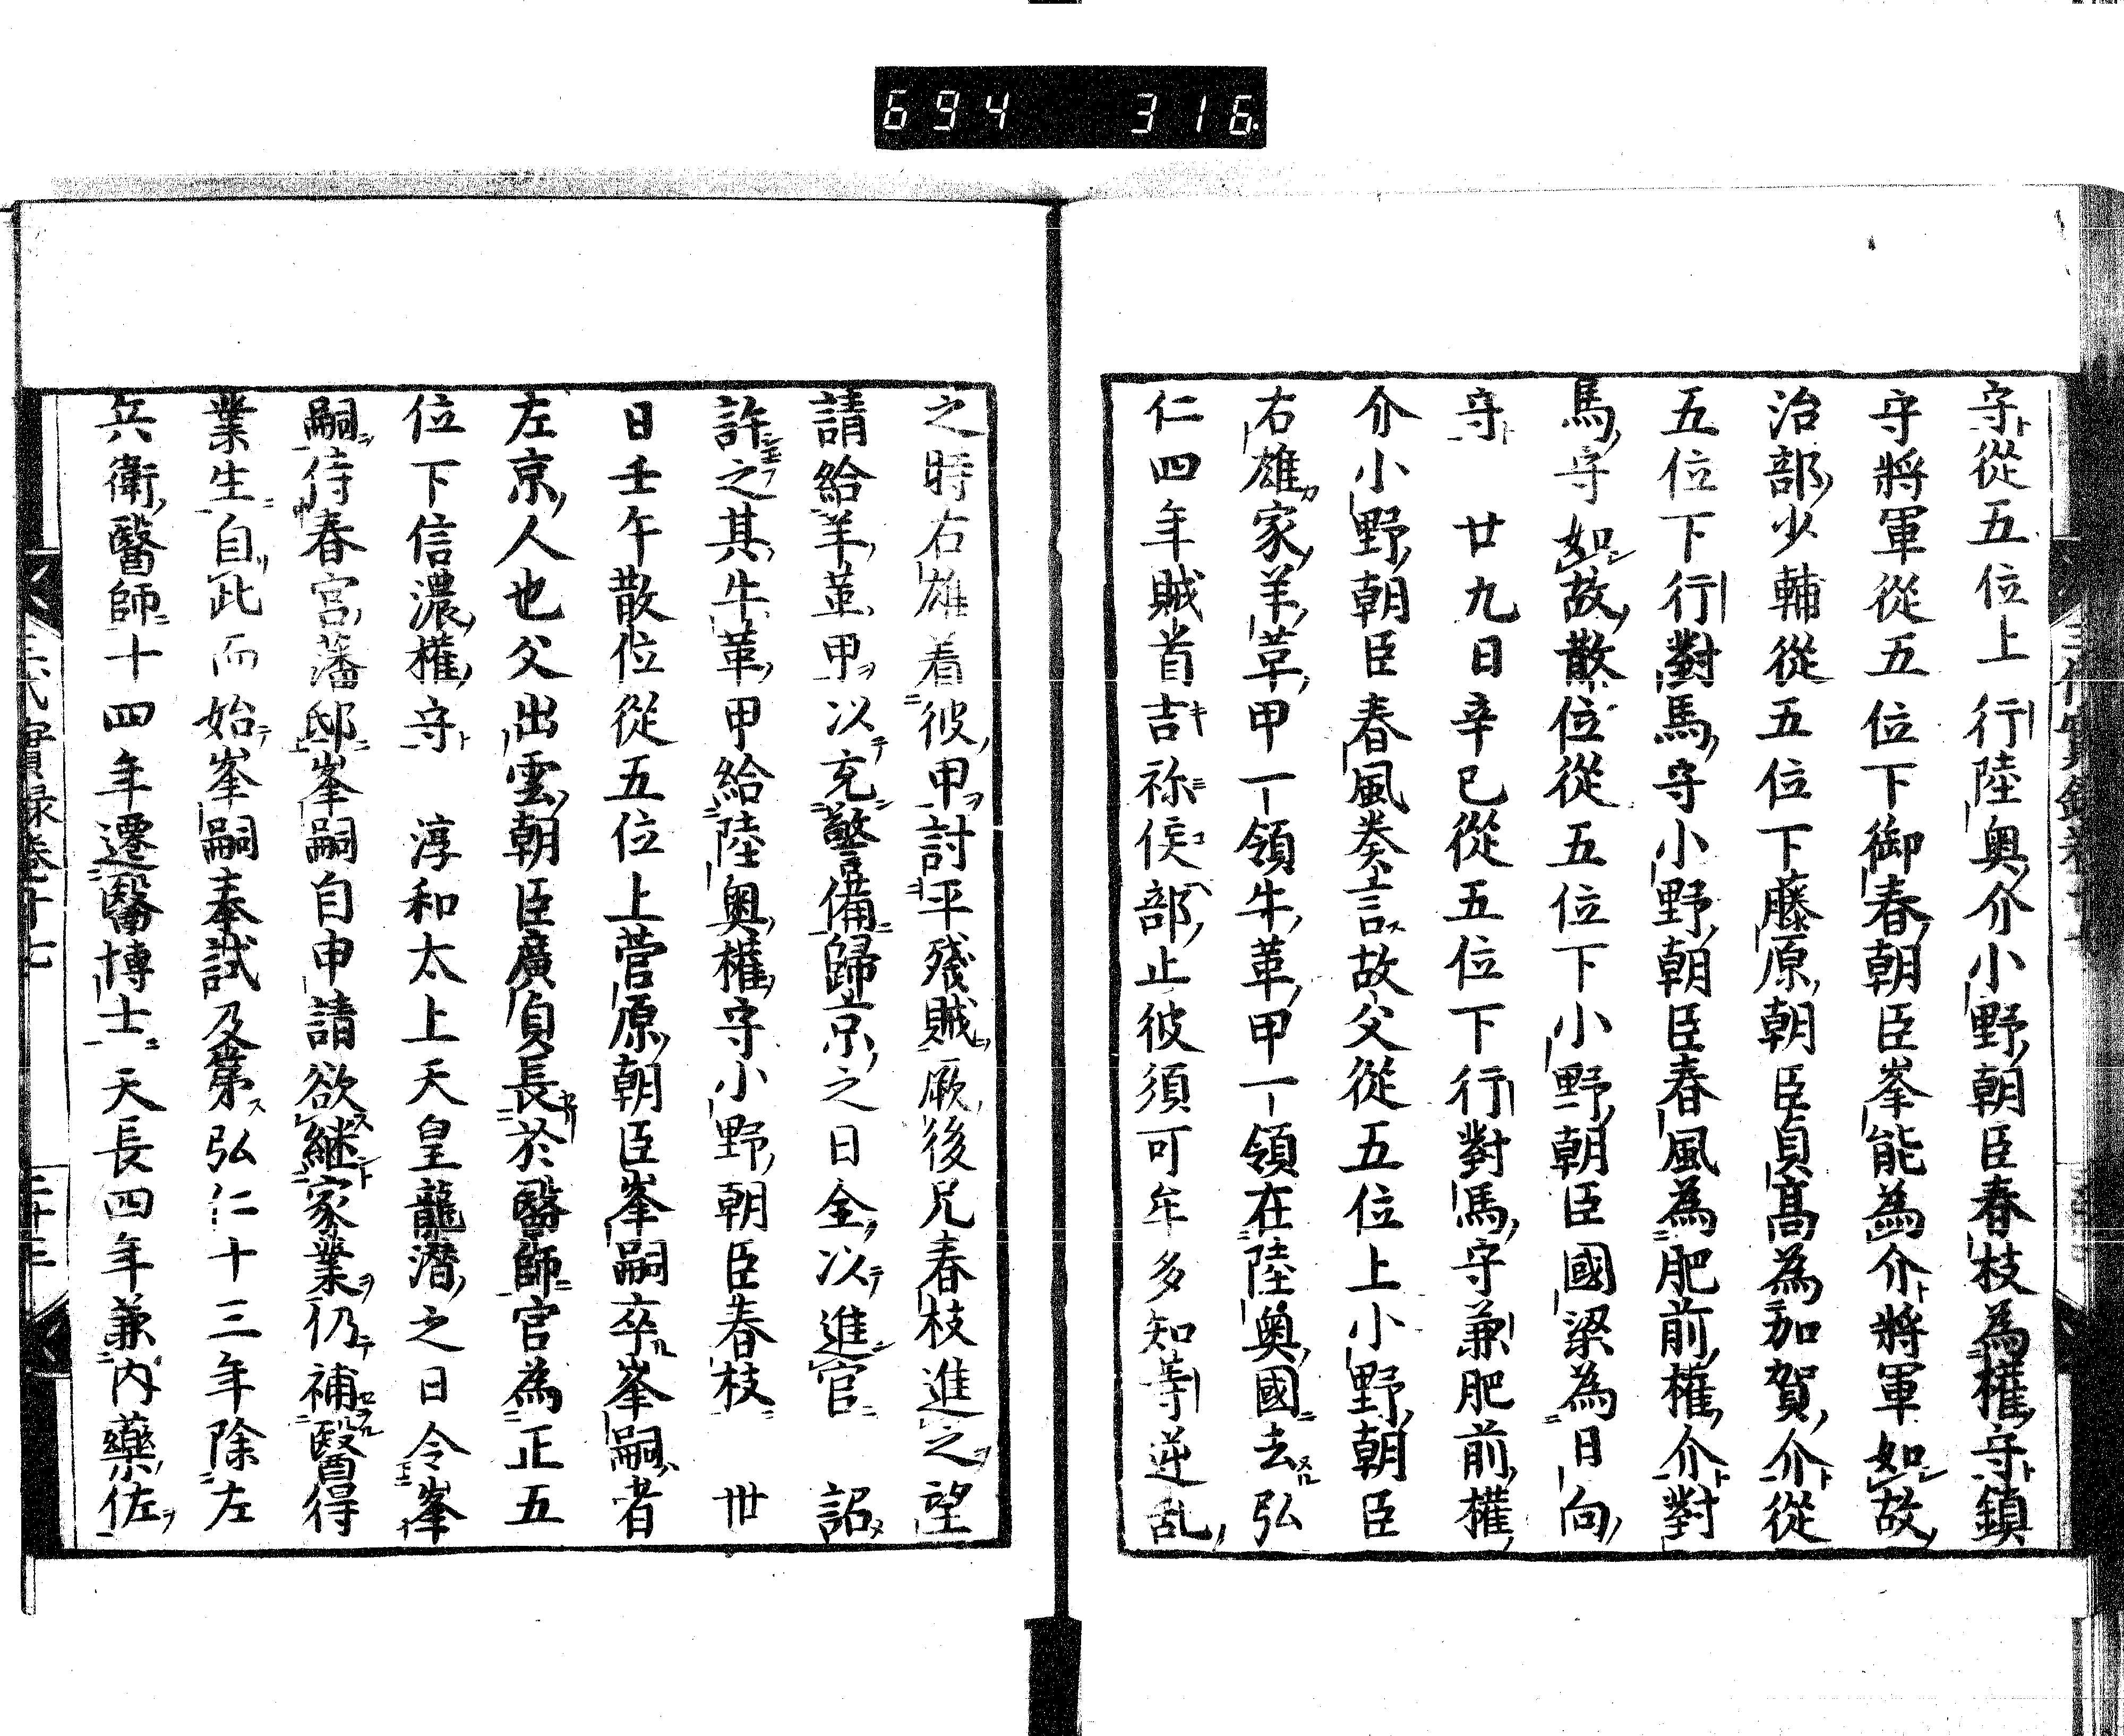 694 316
守從五位上行陸奥介小野朝臣春枝為權守鎮
守將軍從五位下御春朝臣峯能為介將軍如故
治部少輔從五位下藤原朝臣貞髙為加賀介從
五位下行對馬守小野朝臣春風為肥前權介對
馬守如故散位從五位下小野朝臣國梁為日向
守　廿九日辛巳從五位下行對馬守兼肥前權
介小野朝臣春風奏言故父從五位上小野朝臣
右雄家羊革甲一領牛革甲一領在陸奥國去弘
仁四年賊首吉祢侯部止彼須可牟多知等逆乱
之時右雄着彼甲討平殘賊厥後兄春枝進之望
請給羊革甲以充警備歸京之日全以進官　詔
許之其牛革甲給陸奥權守小野朝臣春枝　丗
日壬午散位從五位上菅原朝臣峯嗣卒峯嗣者
左京人也父出雲朝臣廣貞長於醫師官為正五
位下信濃權守　淳和太上天皇龍潜之日令峯
嗣侍春宮藩邸峯嗣自申請欲継家業仍補醫得
業生自此而始峯嗣奉試及第弘仁十三年除左
兵衛醫師十四年遷醫博士天長四年兼内藥佐
三代實録卷十七